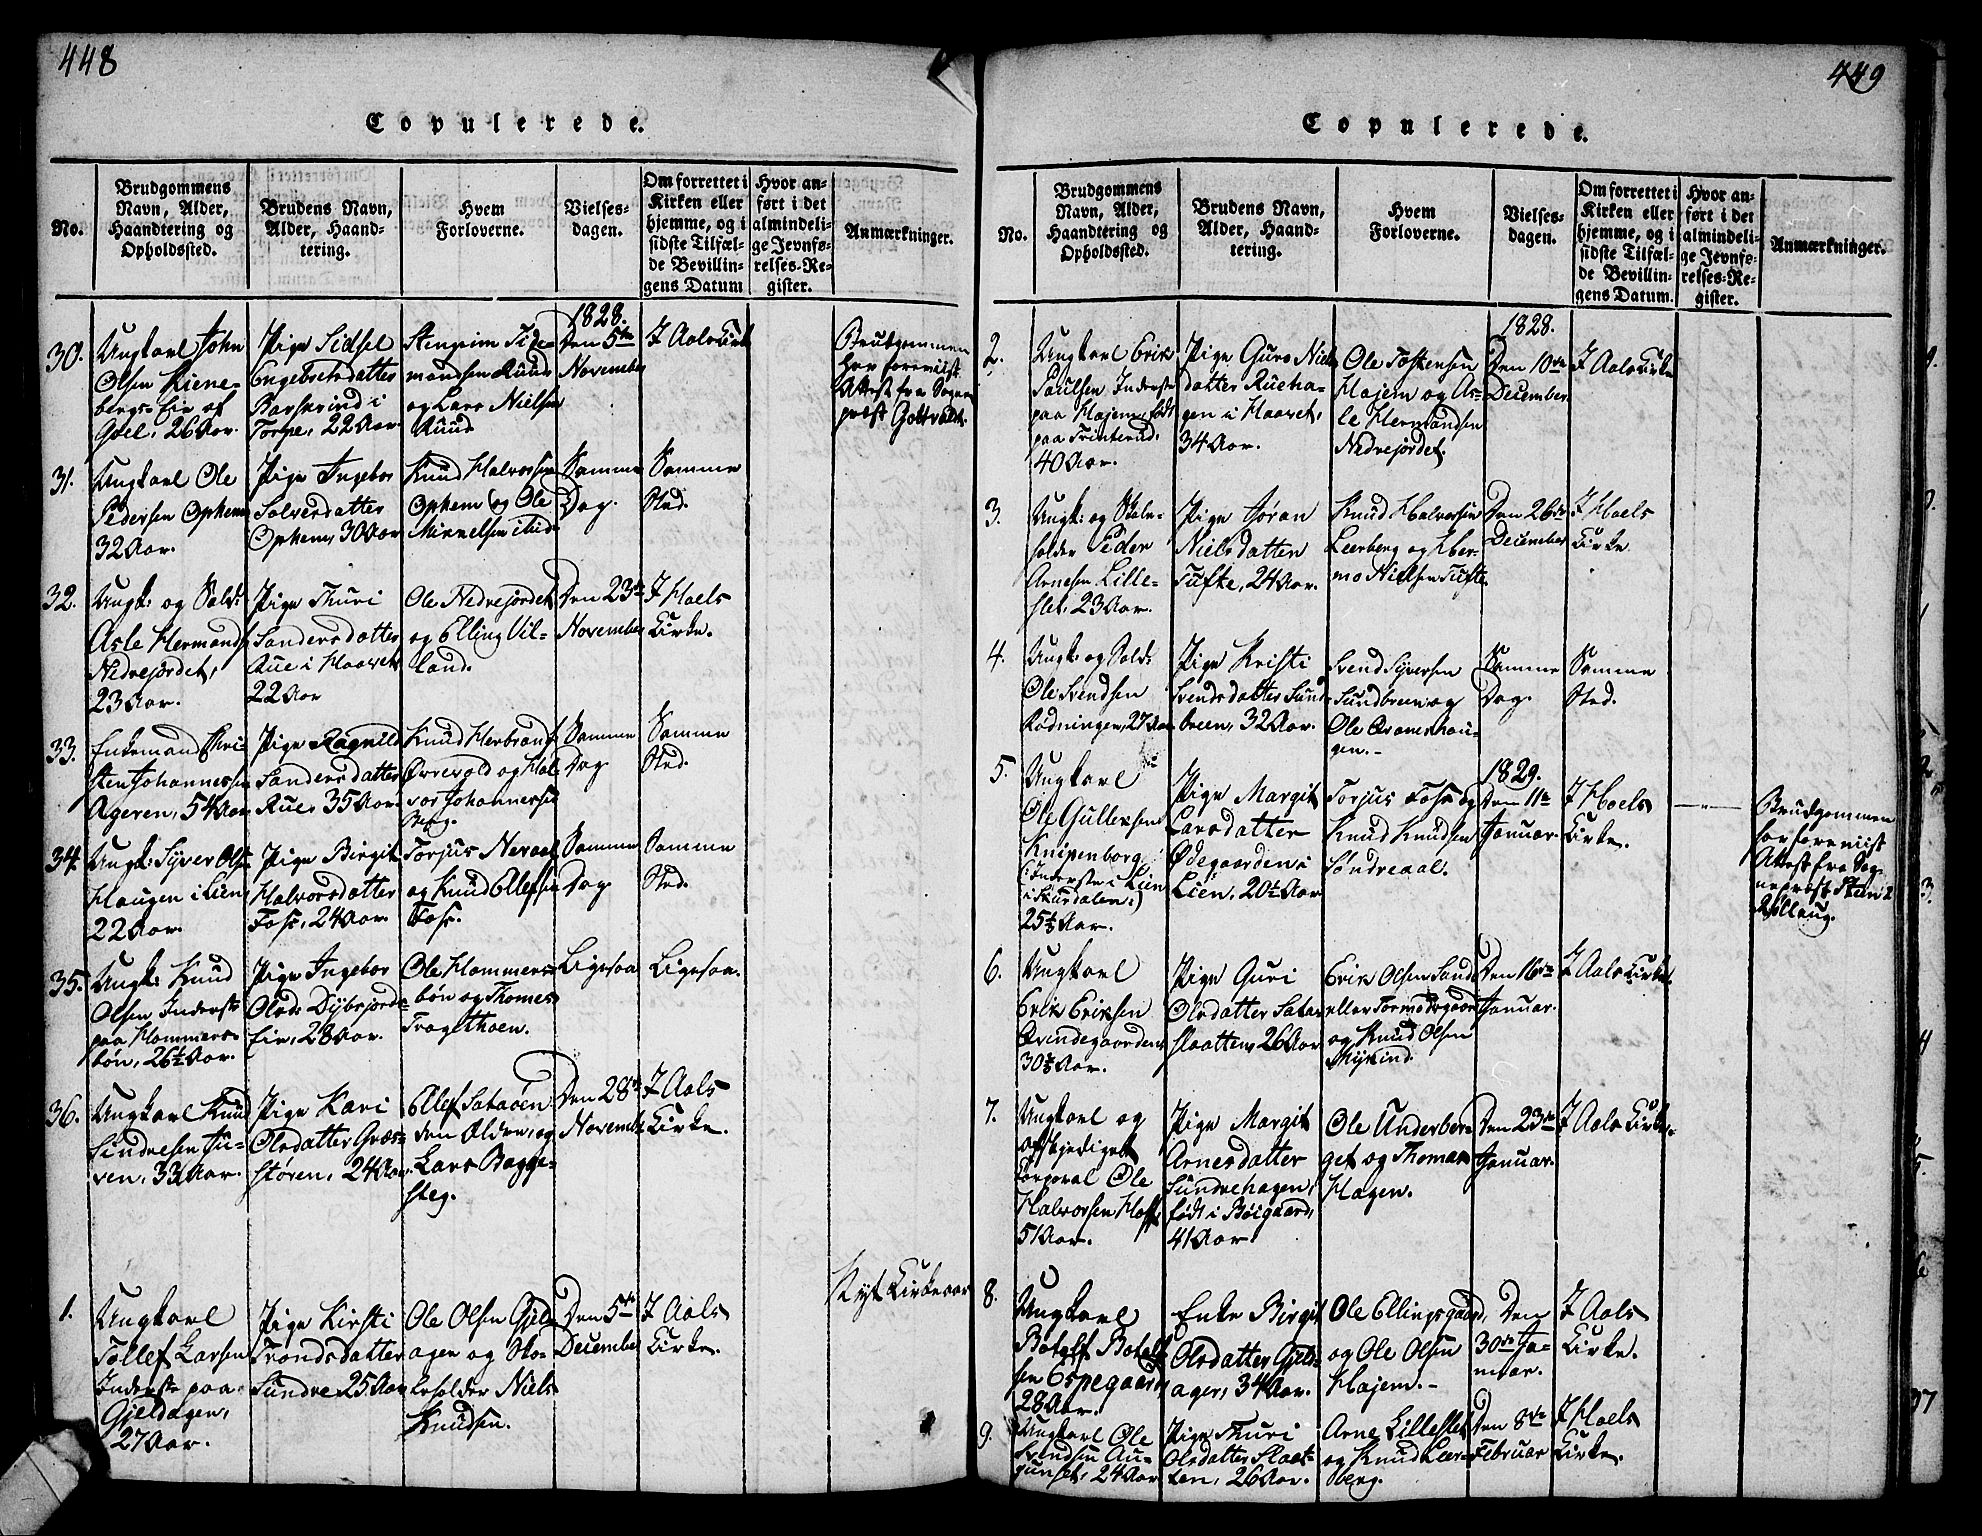 448
Copulerede.
No.
Brudgommens
Navn, Alder,
Haandtering og
Opholdssted.
Brudens Navn,
Alder, Haand-
tering.
Hvem
Forloverne.
Vielses-
dagen.
Om forrettet i
Kirken eller
hjemme, og i
sidste Tilfæl-
de Bevillin-
gens Datum
Hvor an-
ført i det
almindeli-
ge Jevnfø-
relses-Re-
gister.
Anmærkninger.
30.
Ungkarl John
Olsen Liene-
bergs-Eie af
Goel, 26 Aar.
Pige Sidsel
Engebretsdatter
Barskrind i
Torpe, 22 Aar.
Stengrim Tide-
mandsen Ruud
og Lars Nielsen
Ruud
1828.
Den 5te
November
I Aals Kirk
Brudgommen
har foreviist
Attest fra Sogne
præst Gottwaldt.
31.
Ungkarl Ole
Pedersen Ophem
32 Aar.
Pige Ingebor
Solversdatter
Ophem, 30 Aar
Knud Halvorsen
Ophem og Ole
Mikkelsen
Samme
Dag.
Samme
Sted.
32.
Ungk: og Sold:
Asle Hermands:
Nedrejordet,
23 Aar.
Pige Thuri
Sandersdatter
Rue i Haavet
22 Aar
Ole Nedrejordet
og Elling Vil-
land.
Den 23de
November
I Hoels
Kirke.
33.
Enkemand Chri-
sten Johannessen
Ageren, 54 Aar
Pige Ragnild
Sandersdatter
Rue, 35 Aar
Knud Herbrands:
Øvrevold og Hal-
vor Johannessen
Berg.
Samme
Dag
Samme
Sted.
34.
Ungk: Syver Olsen
Haugen i Lien
22 Aar.
Pige Birgit
Halvorsdatter
Foss, 24 Aar.
Torjus Neraal
og Knud Ellefsen
Foss.
Samme
Dag
Samme
Sted.
35.
Ungk: Knud
Olsen Inderste
paa Hammers-
bøn, 26½ Aar.
Pige Ingebor
Olsd: Dybsjords-
Eie, 28 Aar.
Ole Hammers-
bøn og Thomes
Tragethoen.
Ligesaa
Ligesaa.
36.
Ungkarl Knud
Sindresen Ju-
ven, 33 Aar.
Pige Kari
Olsdatter Græs-
støren, 24 Aar
Ellef Sataøen
den Ældre, og
Lars Bagge-
steg.
Den 28de
Novemb
I Aals
Kirke.
Nyt Kirkeaar
1.
Ungkarl
Tollef Larsen
Inderste paa
Gjeldagen,
27 Aar.
Pige Kirsti
Trondsdatter
Sundre 25 Aar
Ole Olsen Gjel-
agen og Sko-
leholder Niels
Knudsen.
Den 5te
December
I Aals
Kirke.
449
Copulerede.
No.
Brudgommens
Navn, Alder,
Haandtering og
Opholdssted.
Brudens Navn,
Alder, Haand-
tering.
Hvem
Forloverne.
Vielses-
dagen.
Om forrettet i
Kirken eller
hjemme, og i
sidste Tilfæl-
de Bevillin-
gens Datum.
Hvor an-
ført i det
almindeli-
ge Jevnfø-
relses-Re-
gister.
Anmærkninger.
2.
Ungkarl Erik
Paulsen Inderste
paa Hajem, født
paa Trinterud,
40 Aar.
Pige Guro Niels
datter Rueha-
gen i Haavet,
34 Aar.
Ole Tostensen
Hajem og As-
le Hermandsen
Nedrejordet
1828.
Den 10de
December
I Aals Kirke
3.
Ungk: og Skole-
holder Peder
Arnesen Lille-
slet, 23 Aar.
Pige Jøran
Nielsdatter
Tufte, 24 Aar.
Knud Halvorsen
Leerberg og Iver-
mo Nielsen Tufte
Den 26de
December
I Hoels
Kirke
4.
Ungk: og Sold:
Ole Svendsen
Rødningen, 27 Aar
Pige Kristi
Svendsdatter Sund-
breen, 32 Aar.
Svend Syversen
Sundbreen og
Ole Branenhou-
gen.-
Samme
Dag.
Samme
Sted.
5.
Ungkarl
Ole Gulleksen
Knipenborg
(:Inderste i Lien
i Skurdalen:)
25½ Aar.
Pige Margit
Larsdatter
Ødegaarden i
Lien, 20½ Aar
Torjus Foss og
Knud Knudsen
Søndreaal.
1829.
Den 11te
Januar.
I Hoels
Kirke.
Brudgommen
har foreviist
Attest fra Sog-
nepræst Steen i
Rollaug.
6.
Ungkarl
Erik Eriksen
Qvindegaarden
30½ Aar.
Pige Guri
Olsdatter Sata-
slaatten, 26 Aar
Erik Olsen Sand
eller Tormodsgaard
og Knud Olsen
Myking.
Den 16de
Januar.
I Aals Kirke.
7.
Ungkarl og
afskjediget
Corporal Ole
Halvorsen Hoff,
51 Aar.
Pige Margit
Arnesdatter
Sundrehagen,
født i Bøigaard,
41 Aar.
Ole Underber-
get og Thomas
Hagen.
Den 23de
Januar.
I Aals Kirke.
8.
Ungkarl
Botolf Botolf-
sen Espegaard,
28 Aar.
Enke Birgit
Olsdatter Gjeld-
ager, 34 Aar.
Ole Ellingsgaard,
og Ole Olsen
Hajem.-
Den
30te Ja-
nuar.
I Aals
Kirke.
9.
Ungkarl Ole
Svendsen Au-
gunset, 24 Aar
Pige Thuri
Olsdatter Slaat-
ten, 26 Aar.
Arne Lilleslet
og Knud Leer-
berg.
Den 8de
Februar
I Hoels
Kirke.